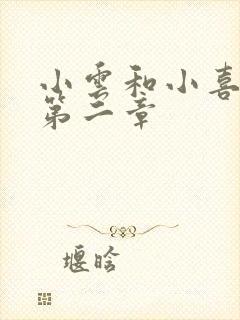 小雲和小喜
第二章
堰晗